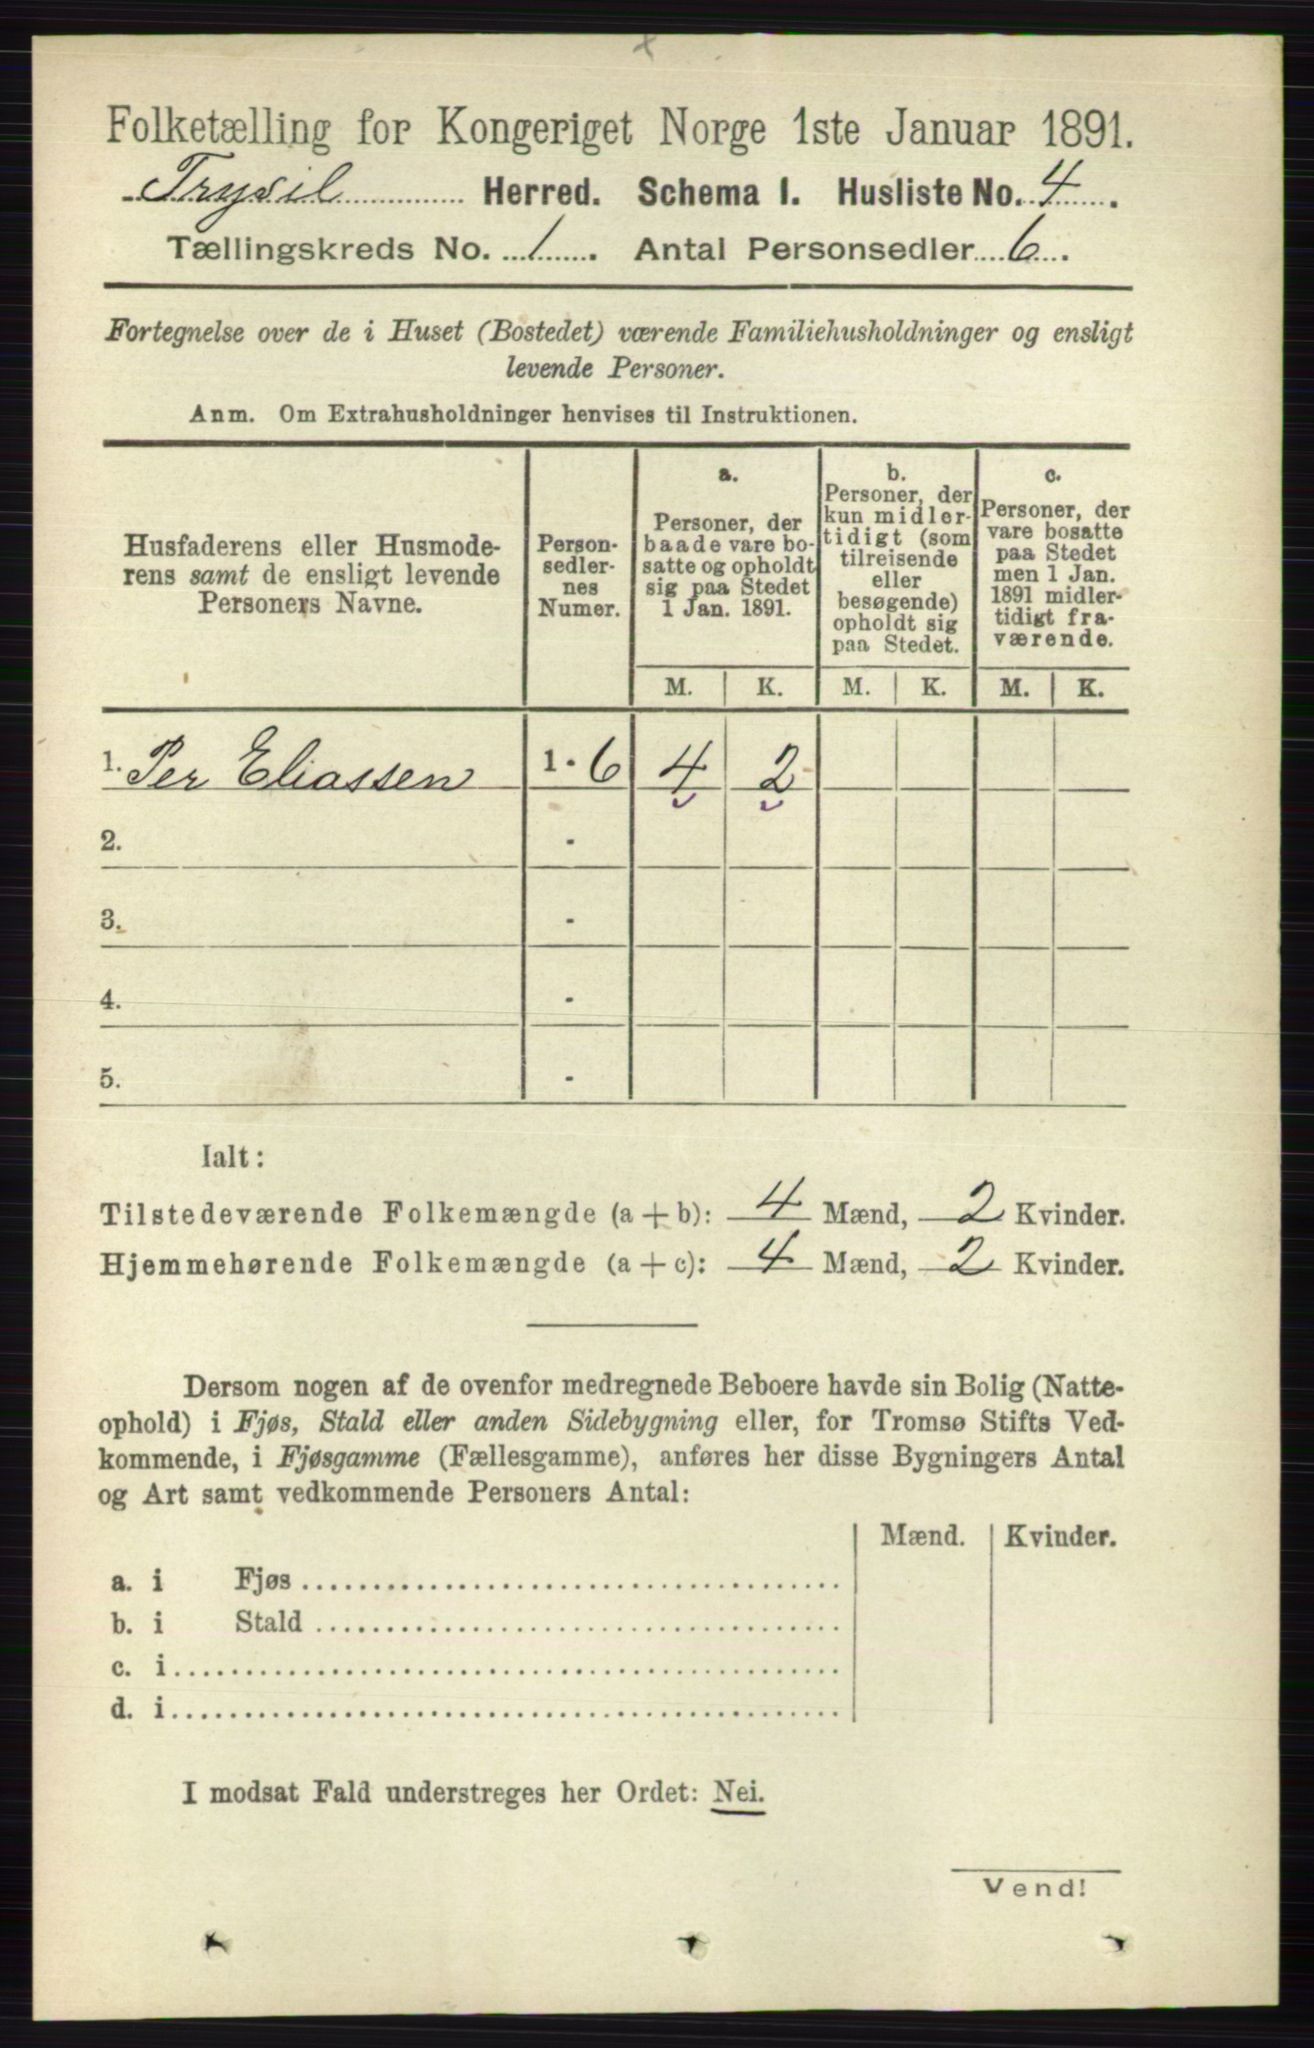 Folketælling for Kongeriget Norge 1ste Januar 1891.
Trysil Herred. Schema I. Husliste No. 4.
Tællingskreds No. 1. Antal Personsedler 6.
Fortegnelse over de i Huset (Bostedet) værende Familiehusholdninger og ensligt
levende Personer.
Anm. Om Extrahusholdninger henvises til Instruktionen.
Husfaderens eller Husmode-
rens samt de ensligt levende
Personers Navne.
Person-
sedler-
nes
Numer.
a.
Personer, der
baade vare bo-
satte og opholdt
sig paa Stedet
1 Jan. 1891.
b.
Personer, der
kun midler-
tidigt (som
tilreisende
eller
besøgende)
opholdt sig
paa Stedet.
c.
Personer, der
vare bosatte
paa Stedet
men 1 Jan.
1891 midler-
tidigt fra-
værende.
M. K. M. K. M. K.
1. Per Eliassen 1 - 6 4 2
2. -
3. -
4. -
5. -
Ialt:
Tilstedeværende Folkemængde (a + b): 4 Mænd, 2 Kvinder.
Hjemmehørende Folkemængde (a + c): 4 Mænd, 2 Kvinder.
Dersom nogen af de ovenfor medregnede Beboere havde sin Bolig (Natte-
ophold) i Fjøs, Stald eller anden Sidebygning eller, for Tromsø Stifts Ved-
kommende, i Fjøsgamme (Fællesgamme), anføres her disse Bygningers Antal
og Art samt vedkommende Personers Antal:
Mænd. Kvinder.
a. i Fjøs
b. i Stald
c. i
d. i
I modsat Fald understreges her Ordet: Nei.
Vend!